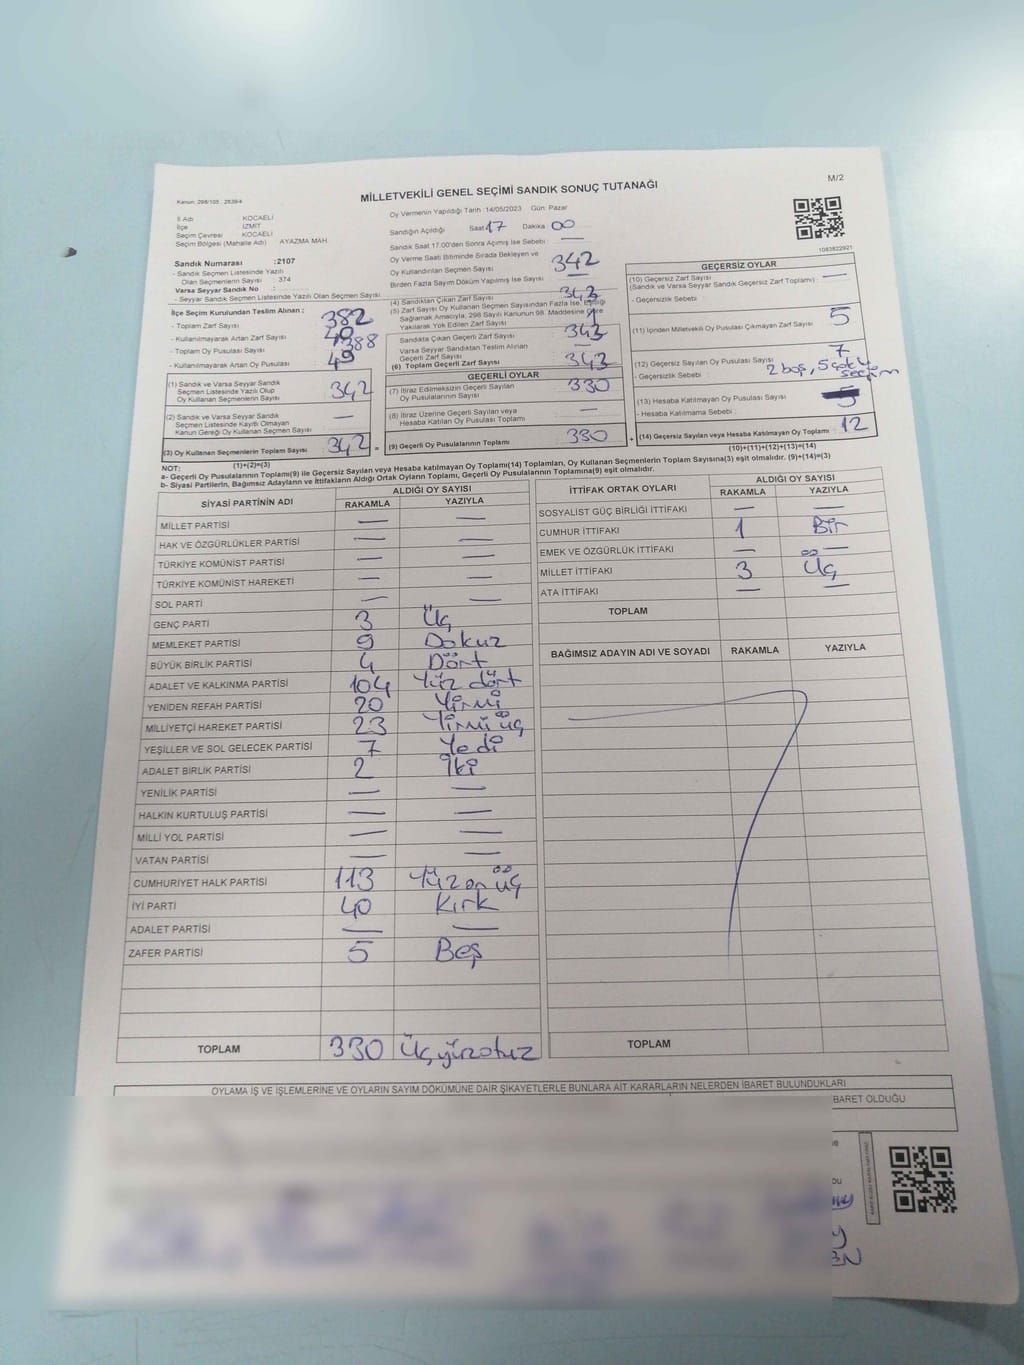 Kanun: 298/105 , 2839/4
MİLLETVEKİLİ GENEL SEÇİMİ SANDIK SONUÇ TUTANAĞI
M/2
İl Adı KOCAELİ
İlçe İZMİT
Seçim Çevresi KOCAELİ
Seçim Bölgesi (Mahalle Adı) AYAZMA MAH.
Sandık Numarası :2107
- Sandık Seçmen Listesinde Yazılı
Olan Seçmenlerin Sayısı : 374
Varsa Seyyar Sandık No :
- Seyyar Sandık Seçmen Listesinde Yazılı Olan Seçmen Sayısı :
İlçe Seçim Kurulundan Teslim Alınan :
- Toplam Zarf Sayısı 382
- Kullanılmayarak Artan Zarf Sayısı 40
- Toplam Oy Pusulası Sayısı 388
- Kullanılmayarak Artan Oy Pusulası 49
(1) Sandık ve Varsa Seyyar Sandık
Seçmen Listesinde Yazılı Olup
Oy Kullanan Seçmenlerin Sayısı 342
(2) Sandık ve Varsa Seyyar Sandık
Seçmen Listesinde Kayıtlı Olmayan
Kanun Gereği Oy Kullanan Seçmen Sayısı —
(3) Oy Kullanan Seçmenlerin Toplam Sayısı 342 =
(1)+(2)=(3)
Oy Vermenin Yapıldığı Tarih :14/05/2023 Gün: Pazar
Sandığın Açıldığı Saat 17 Dakika 00
Sandık Saat 17.00'den Sonra Açılmış İse Sebebi : —
Oy Verme Saati Bitiminde Sırada Bekleyen ve
Oy Kullandırılan Seçmen Sayısı 342
Birden Fazla Sayım Döküm Yapılmış İse Sayısı : —
(4) Sandıktan Çıkan Zarf Sayısı 343
(5) Zarf Sayısı Oy Kullanan Seçmen Sayısından Fazla İse, Eşitliği
Sağlamak Amacıyla, 298 Sayılı Kanunun 98. Maddesine Göre
Yakılarak Yok Edilen Zarf Sayısı 1
Sandıkta Çıkan Geçerli Zarf Sayısı 343
Varsa Seyyar Sandıktan Teslim Alınan
Geçerli Zarf Sayısı —
(6) Toplam Geçerli Zarf Sayısı 343
GEÇERLİ OYLAR
(7) İtiraz Edilmeksizin Geçerli Sayılan
Oy Pusulalarının Toplamı 330
(8) İtiraz Üzerine Geçerli Sayılan veya
Hesaba Katılan Oy Pusulası Toplamı —
(9) Geçerli Oy Pusulalarının Toplamı 330 +
1083822921
GEÇERSİZ OYLAR
(10) Geçersiz Zarf Sayısı —
(Sandık ve Varsa Seyyar Sandık Geçersiz Zarf Toplamı) :
- Geçersizlik Sebebi
(11) İçinden Milletvekili Oy Pusulası Çıkmayan Zarf Sayısı 5
(12) Geçersiz Sayılan Oy Pusulası Sayısı 7
- Geçersizlik Sebebi : 2 boş, 5 çoklu seçim
(13) Hesaba Katılmayan Oy Pusulası Sayısı
- Hesaba Katılmama Sebebi :
(14) Geçersiz Sayılan veya Hesaba Katılmayan Oy Toplamı 12
(10)+(11)+(12)+(13)=(14)
NOT:
a- Geçerli Oy Pusulalarının Toplamı(9) ile Geçersiz Sayılan veya Hesaba katılmayan Oy Toplamı(14) Toplamları, Oy Kullanan Seçmenlerin Toplam Sayısına(3) eşit olmalıdır. (9)+(14)=(3)
b- Siyasi Partilerin, Bağımsız Adayların ve İttifakların Aldığı Ortak Oyların Toplamı, Geçerli Oy Pusulalarının Toplamına(9) eşit olmalıdır.
SİYASİ PARTİNİN ADI ALDIĞI OY SAYISI
RAKAMLA YAZIYLA
MİLLET PARTİSİ — —
HAK VE ÖZGÜRLÜKLER PARTİSİ — —
TÜRKİYE KOMÜNİST PARTİSİ — —
TÜRKİYE KOMÜNİST HAREKETİ — —
SOL PARTİ — —
GENÇ PARTİ 3 Üç
MEMLEKET PARTİSİ 9 Dokuz
BÜYÜK BİRLİK PARTİSİ 4 Dört
ADALET VE KALKINMA PARTİSİ 104 Yüz dört
YENİDEN REFAH PARTİSİ 20 Yirmi
MİLLİYETÇİ HAREKET PARTİSİ 23 Yirmi üç
YEŞİLLER VE SOL GELECEK PARTİSİ 7 Yedi
ADALET BİRLİK PARTİSİ 2 İki
YENİLİK PARTİSİ — —
HALKIN KURTULUŞ PARTİSİ — —
MİLLİ YOL PARTİSİ — —
VATAN PARTİSİ — —
CUMHURİYET HALK PARTİSİ 113 Yüz on üç
İYİ PARTİ 40 Kırk
ADALET PARTİSİ — —
ZAFER PARTİSİ 5 Beş
TOPLAM 330 Üçyüzotuz
İTTİFAK ORTAK OYLARI ALDIĞI OY SAYISI
RAKAMLA YAZIYLA
SOSYALİST GÜÇ BİRLİĞİ İTTİFAKI — —
CUMHUR İTTİFAKI 1 Bir
EMEK VE ÖZGÜRLÜK İTTİFAKI — —
MİLLET İTTİFAKI 3 Üç
ATA İTTİFAKI — —
TOPLAM
BAĞIMSIZ ADAYIN ADI VE SOYADI RAKAMLA YAZIYLA
TOPLAM
OYLAMA İŞ VE İŞLEMLERİNE VE OYLARIN SAYIM DÖKÜMÜNE DAİR ŞİKAYETLERLE BUNLARA AİT KARARLARIN NELERDEN İBARET BULUNDUKLARI
BARET OLDUĞU